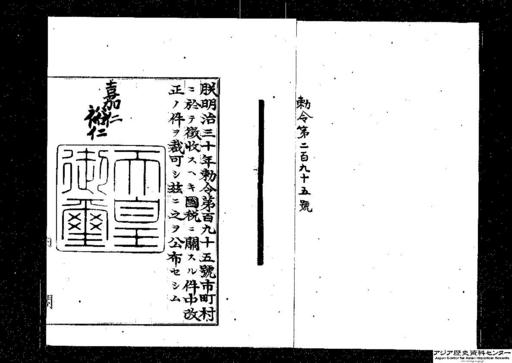 勅令第二百九十五號
朕明治三十年勅令第百九十五號市町村
ニ於テ徴收スヘキ國税ニ關スル件中改
正ノ件ヲ裁可シ茲ニ之ヲ公布セシム
嘉仁
裕仁
天皇
御璽
内閣
アジア歴史資料センター
Japan Center for Asian Historical Records